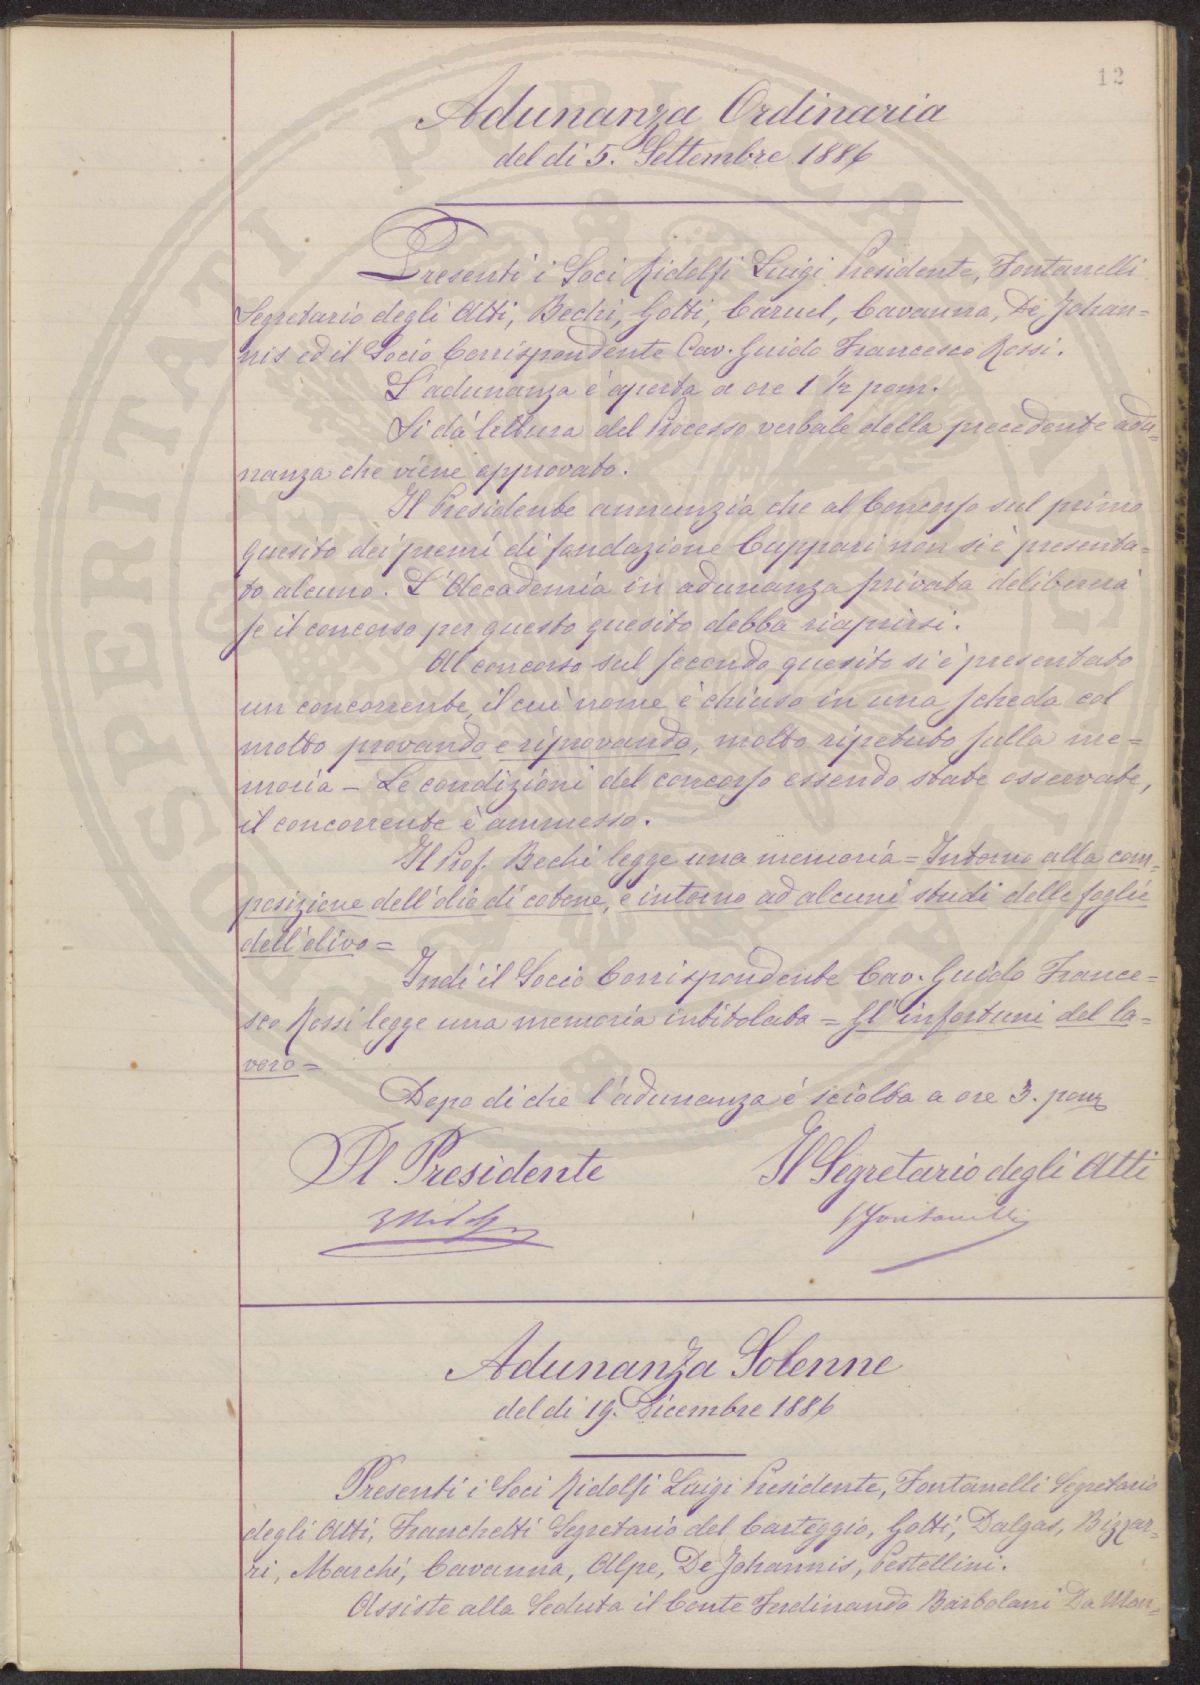 12
Adunanza Ordinaria
del dì 5. Settembre 1886
Presenti i Soci Ridolfi Luigi Presidente, Fontanelli
Segretario degli Atti, Bechi, Gotti, Caruel, Cavanna, De Johan=
nis ed il Socio Corrispondente Cav. Guido Francesco Rossi.
L'adunanza è aperta a ore 1 1/2 pom.
Si dà lettura del Processo verbale della precedente adu=
nanza che viene approvato.
Il Presidente annunzia che al Concorso sul primo
quesito dei premi di fondazione Cuppari non si è presenta=
to alcuno. L'Accademia in adunanza privata delibererà
se il concorso per questo quesito debba riaprirsi.
Al concorso sul secondo quesito si è presentato
un concorrente, il cui nome è chiuso in una scheda col
motto provando e riprovando, motto ripetuto sulla me=
moria - Le condizioni del concorso essendo state osservate,
il concorrente è ammesso.
Il Prof. Bechi legge una memoria = Intorno alla com=
posizione dell'olio di cotone, e intorno ad alcuni studi delle foglie
dell'olivo =
Indi il Socio Corrispondente Cav. Guido France=
sco Rossi legge una memoria intitolata = Gl'infortuni del la=
voro =
Dopo di che l'adunanza è sciolta a ore 3. pom
Il Presidente Il Segretario degli Atti
Fontanelli
Adunanza Solenne
del dì 19. Dicembre 1886
Presenti i Soci Ridolfi Luigi Presidente, Fontanelli Segretario
degli Atti, Franchetti Segretario del Carteggio, Gotti, Dalgas, Bizzar=
ri, Marchi, Cavanna, Alpe, De Johannis, Pestellini.
Assiste alla Seduta il Conte Ferdinando Barbolani Da Mon=
PROSPERITATI PUBLICAE AUGENDAE